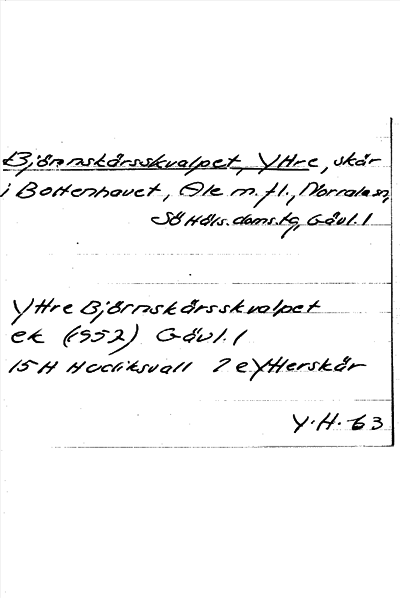 Björnskärsskvalpet, Yttre, skär
i Bottenhavet, Åle m.fl., Norrala sn,
Sö Häls. doms.tg, Gävl. l
Yttre Björnskärsskvalpet
ek (1952) Gävl. l
15H Hudiksvall 2 e Ytterskär
Y.H. 63